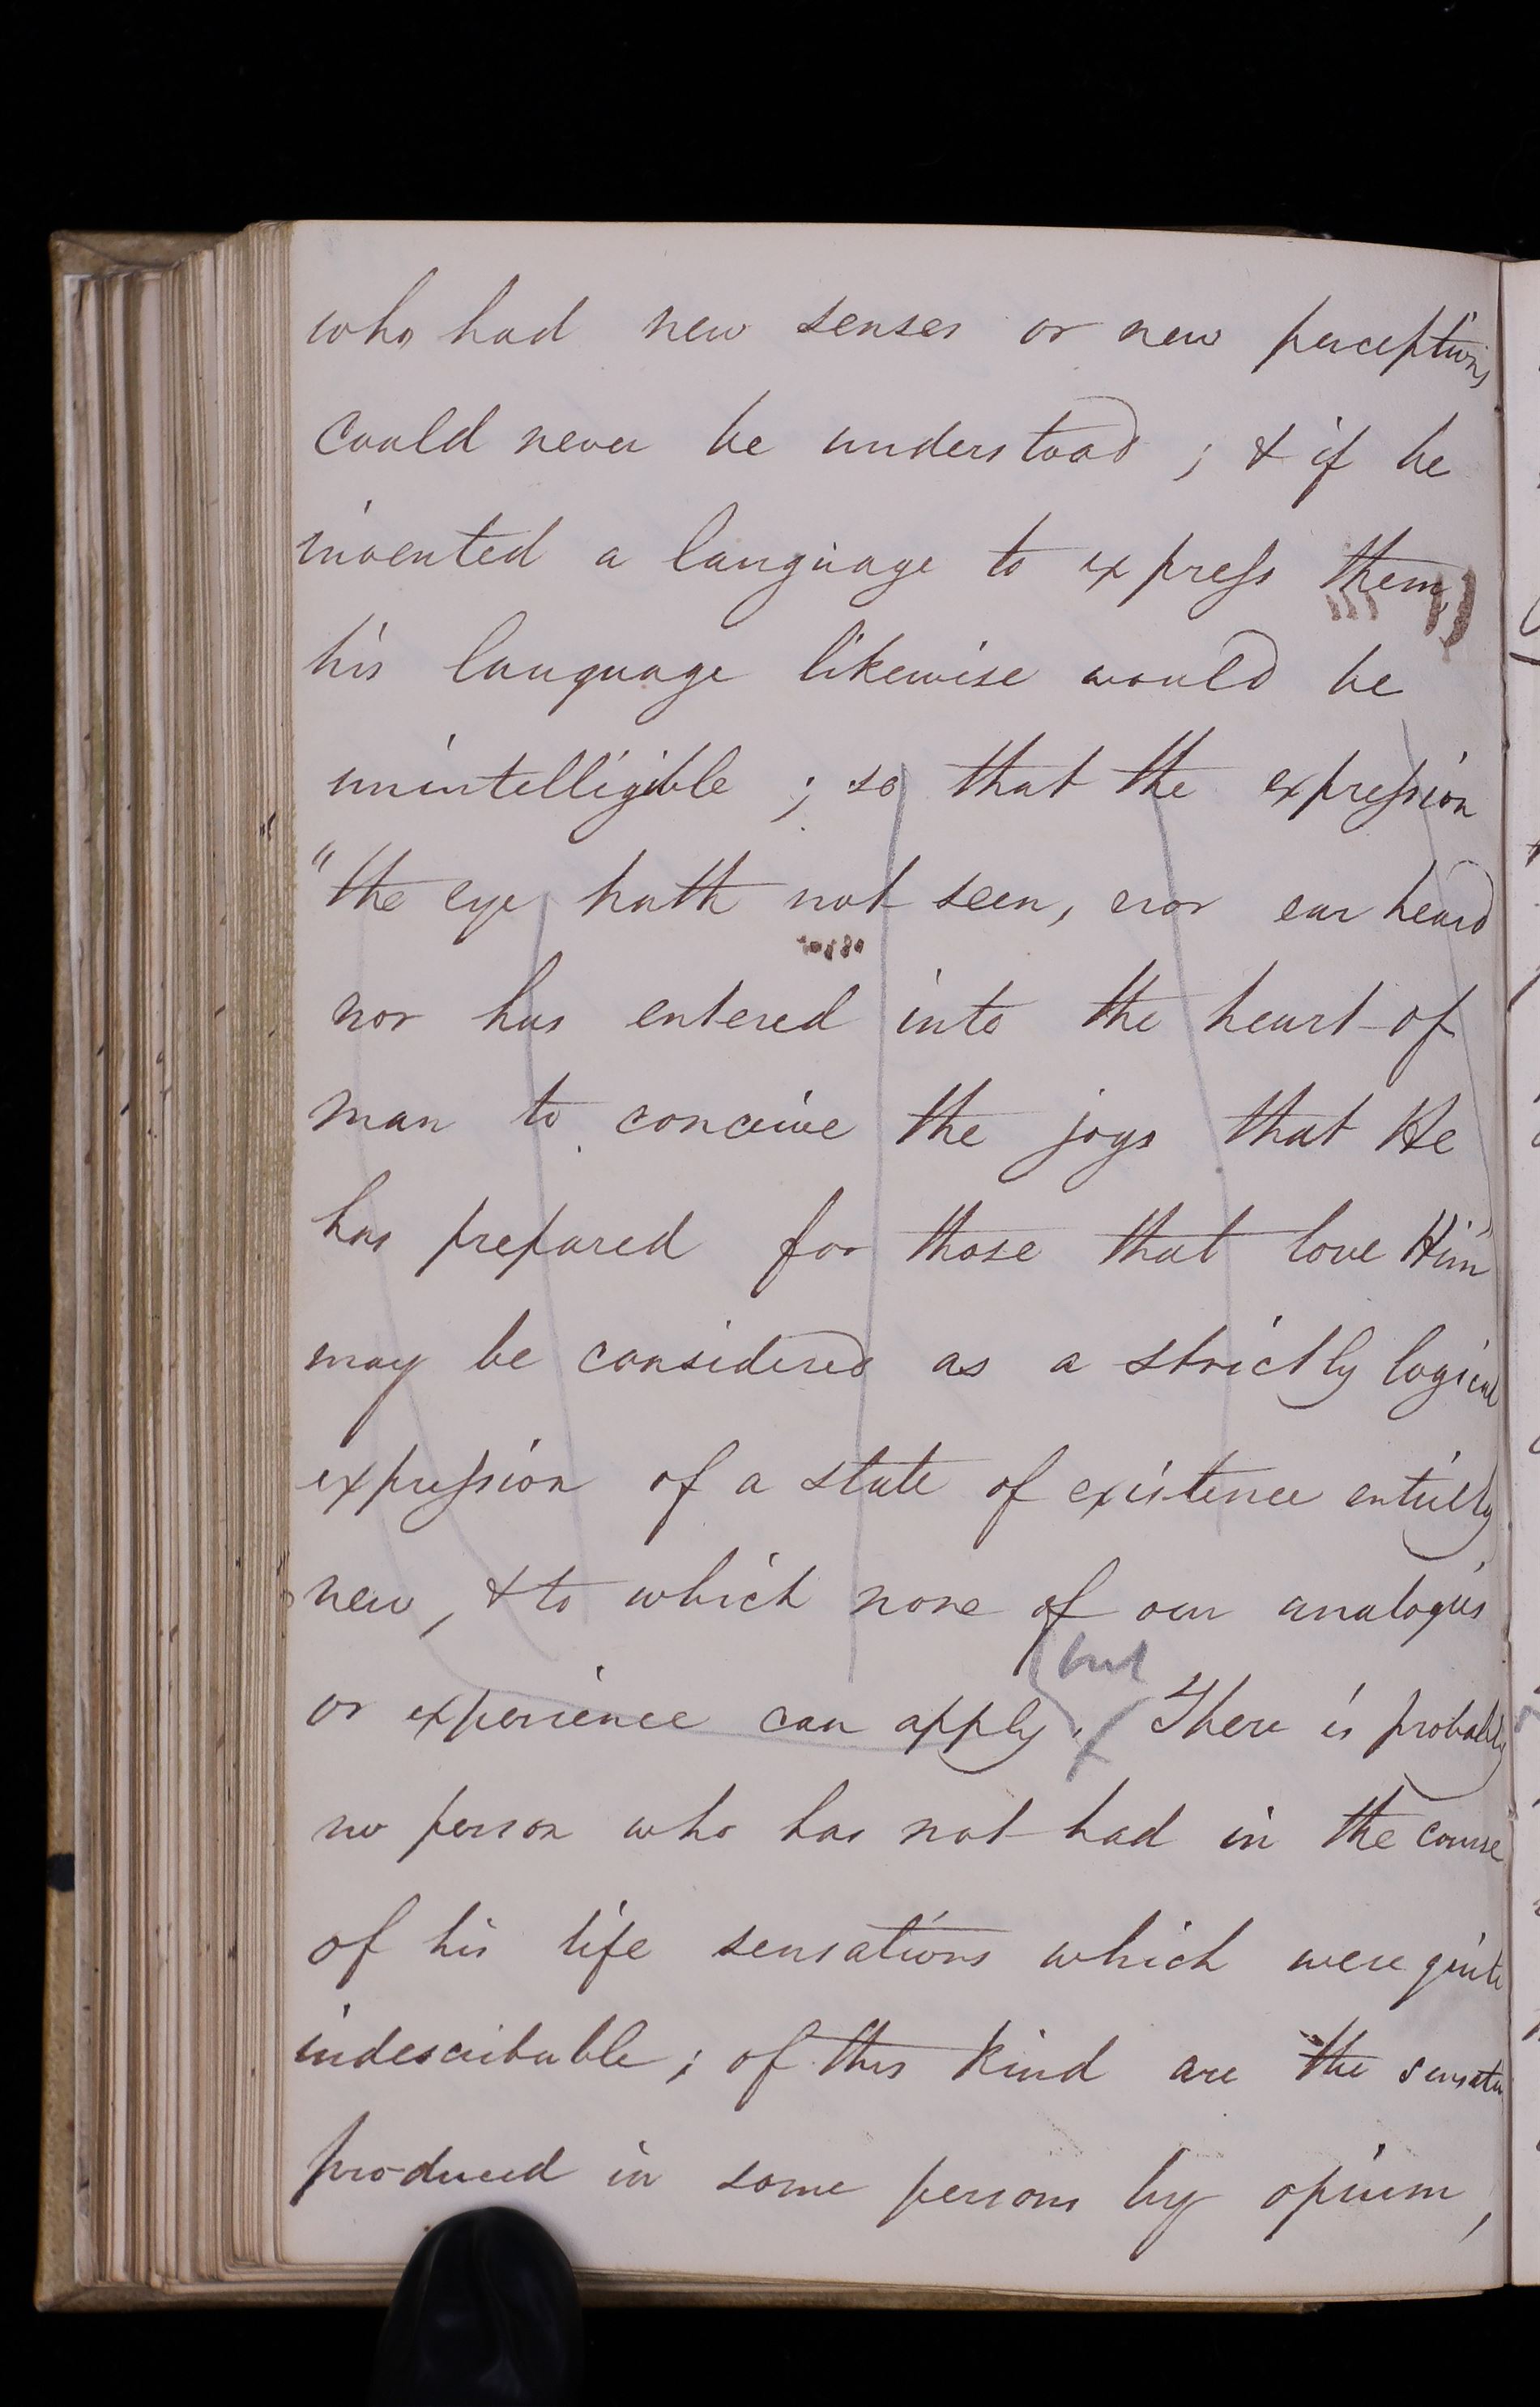 who had new senses or new perceptions
could never be understood ; & if he
invented a language to express them,
his language likewise would be
unintelligible ; so that the expression
"the eye hath not seen, nor ear heard
nor has entered into the heart of
man to conceive the joys that He
has prepared for those that love Him"
may be considered as a strictly logical
expression of a state of existence entirely
new, & to which none of our analogies
but
or experience can apply. There is probably
no person who has not had in the course
of his life sensations which were quite
indescribable ; of this kind are the
produced in some persons by opium,